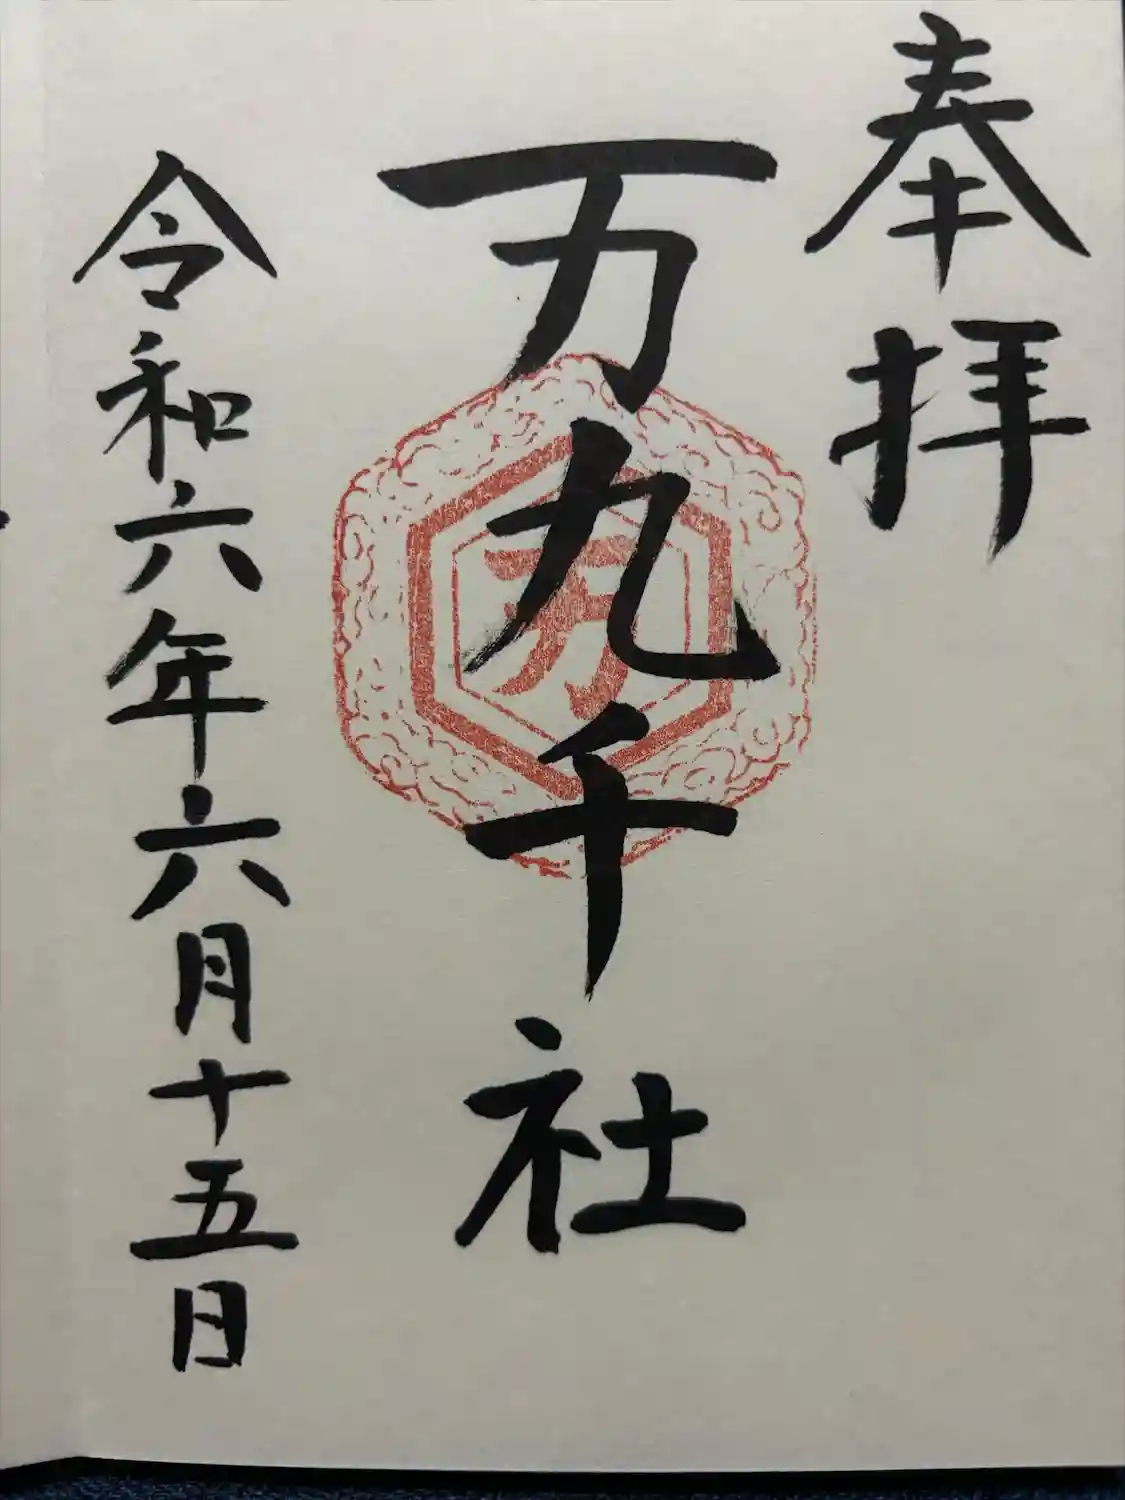 奉拝
万九千社
令和六年六月十五日